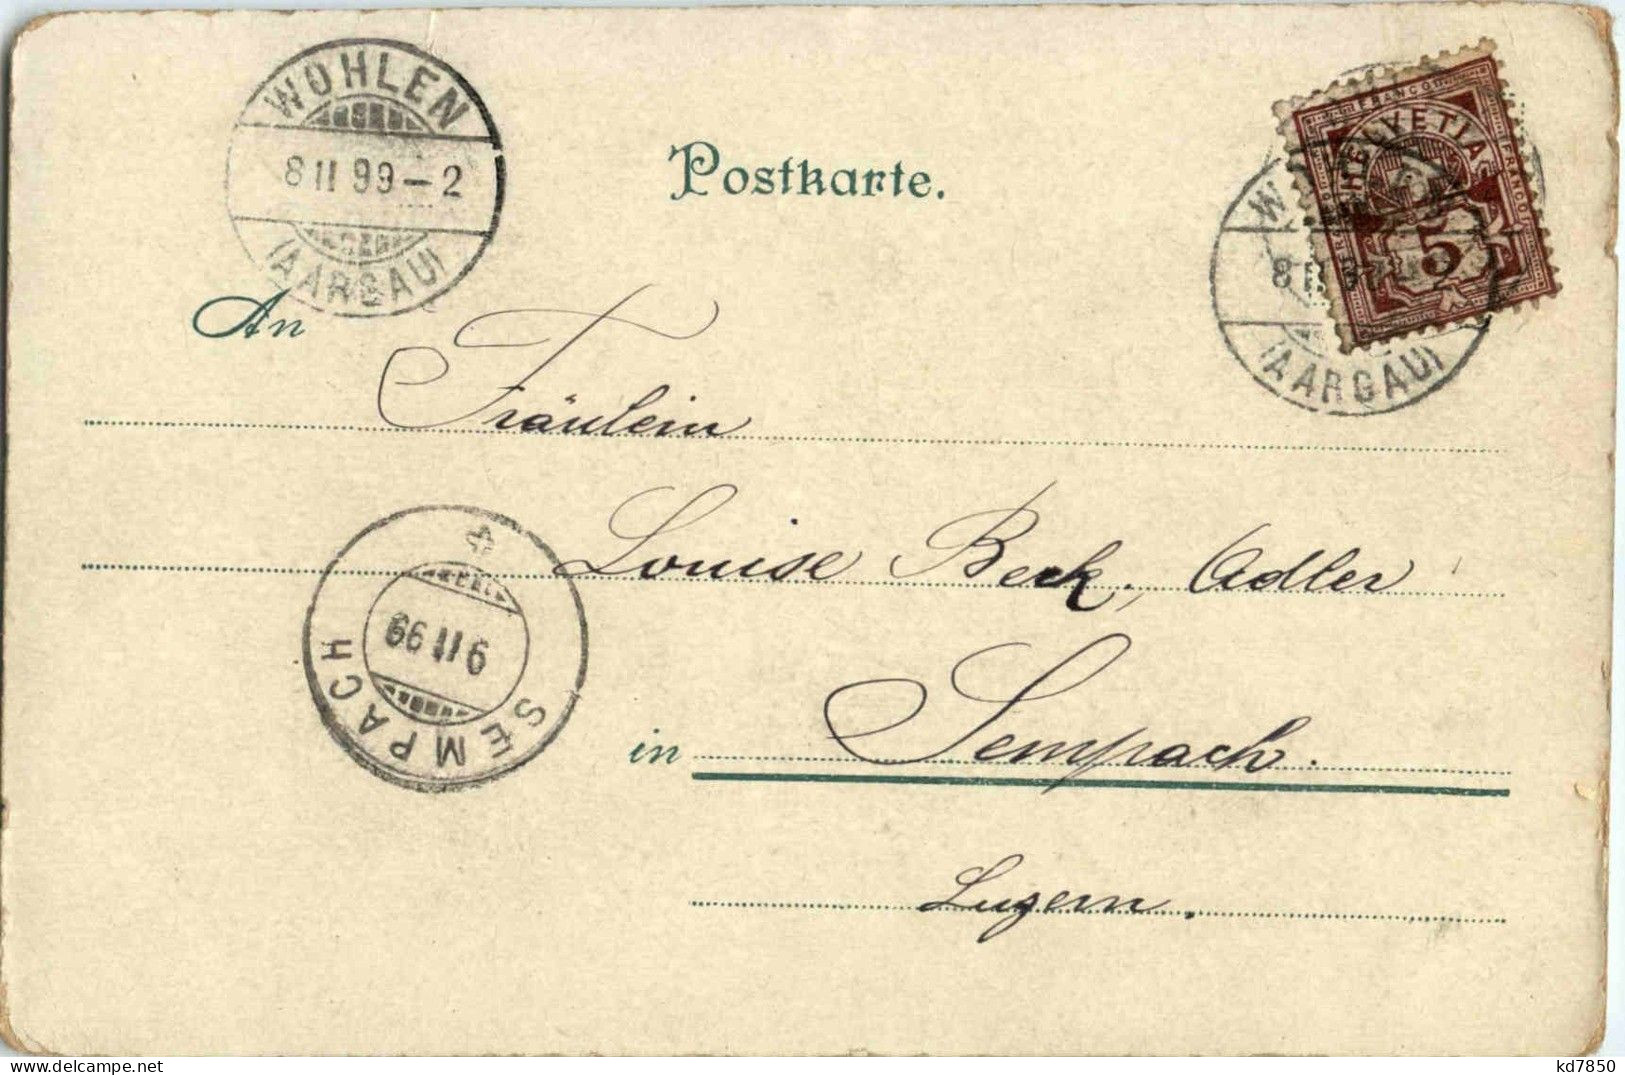 WOHLEN
8 II 99 – 2
(AARGAU)
Postkarte.
FRANCO
HELVETIA
FRANCO
5
8 II
2
(AARGAU)
An
Fräulein
Louise Beck, Adler
SEMPACH
9 II 99
in Sempach.
Luzern.
delcampe.net
kd7850